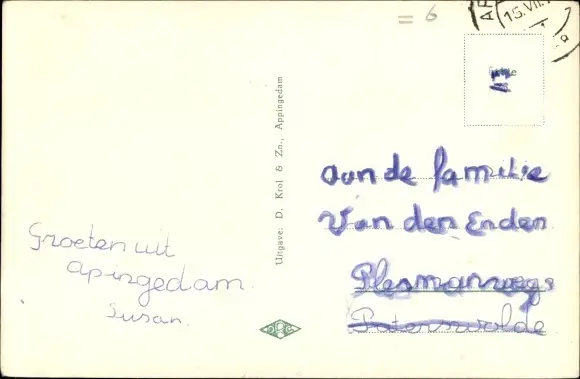 = 6
15.VII.
Groeten uit
apingedam.
Susan.
Uitgave: D. Krol & Zn., Appingedam
aan de familie
Van den Enden